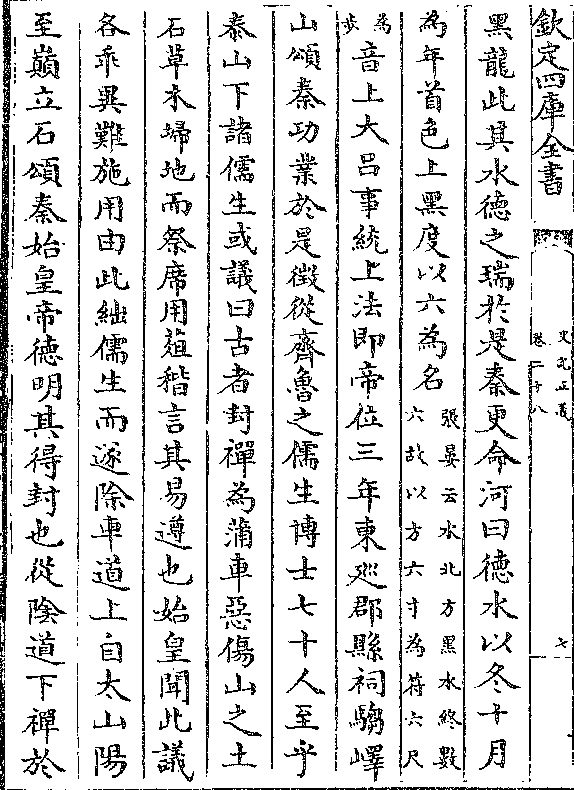 欽定四庫全書
史記正義
卷二十八
七
黑龍此其水德之瑞於是秦更命河曰德水以冬十月
為年首色上黑度以六為名
張晏云水北方黑水終數
六故以方六寸為符六尺
為
步
音上大吕事統上法即帝位三年東廵郡縣祠騶嶧
山頌秦功業於是徵從齊魯之儒生博士七十人至乎
泰山下諸儒生或議曰古者封禪為蒲車惡傷山之土
石草木埽地而祭席用葅稭言其易遵也始皇聞此議
各乖異難施用由此絀儒生而遂除車道上自太山陽
至巔立石頌秦始皇帝德明其得封也從陰道下禪於